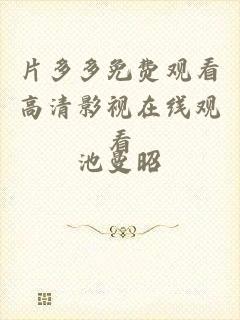 片多多免费观看
高清影视在线观
看
池曼昭